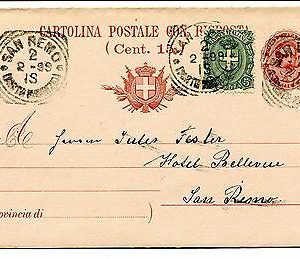 CARTOLINA POSTALE CON RISPOSTA
(Cent. 15
SAN REMO
2
2-99
1S
SAN
2
Herrn Jules Forster
Hotel Bellevue
San Remo
rovincia di